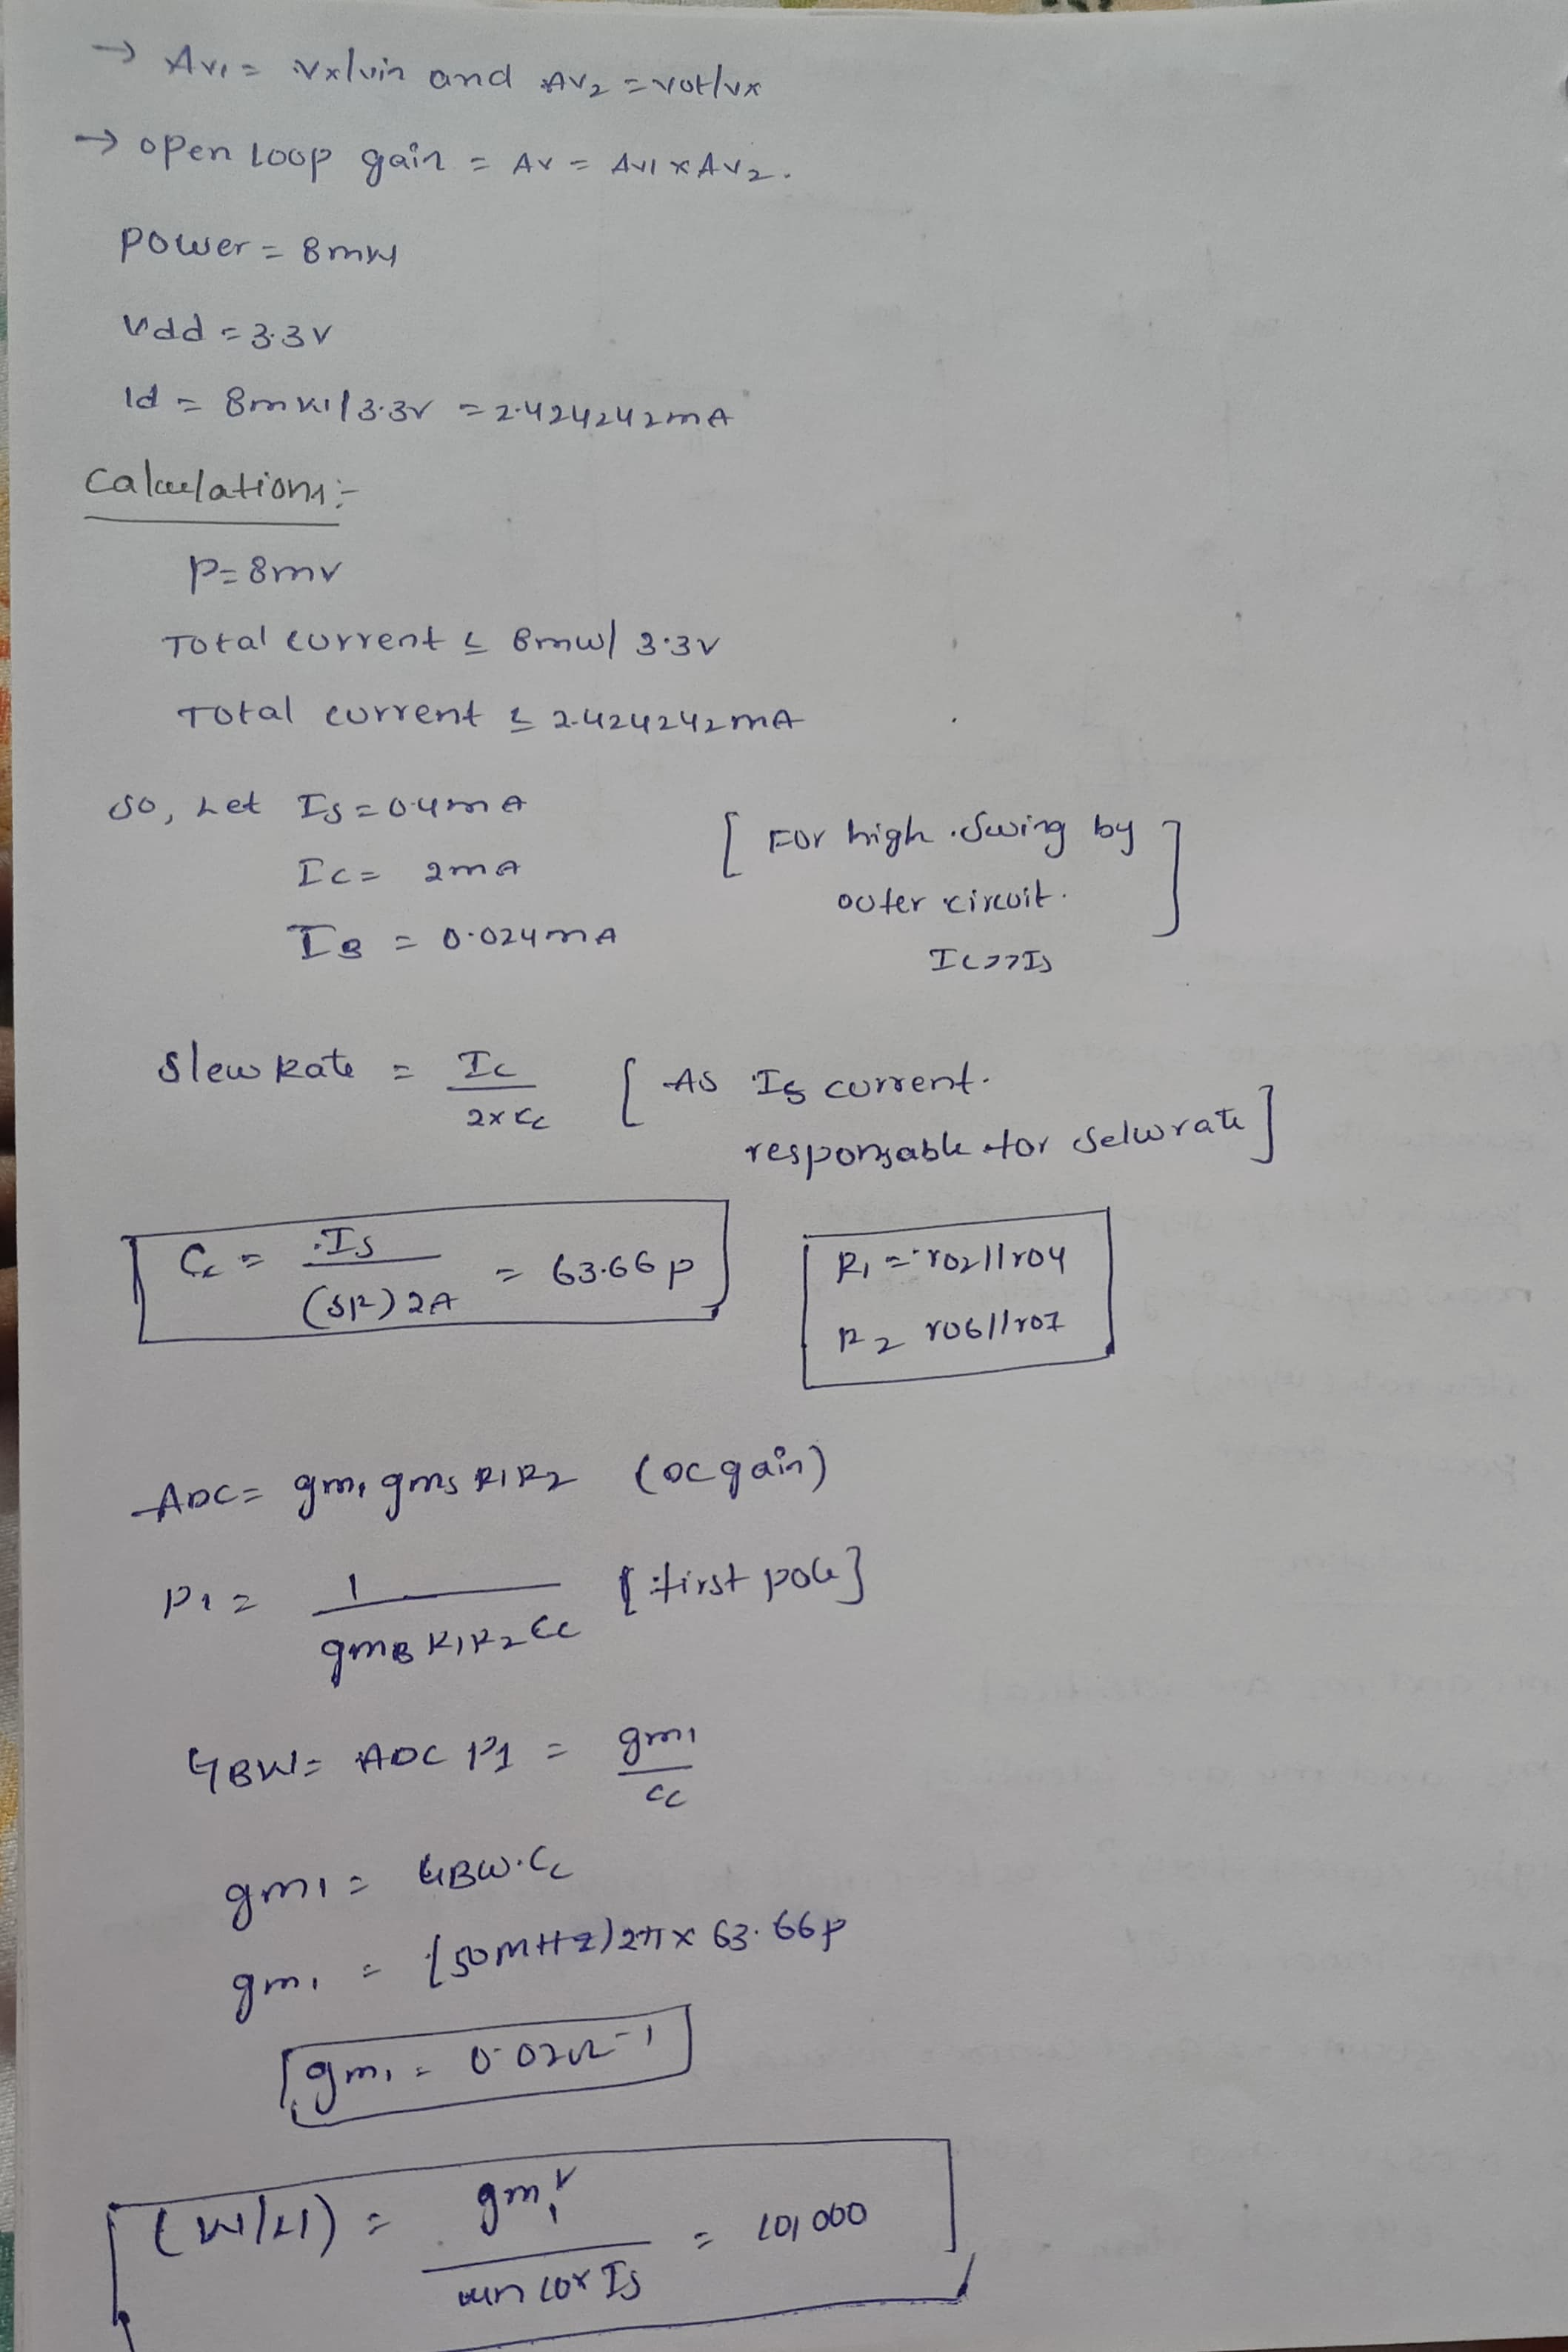 → Av1 = vx/vin and Av2 = vot/vx
→ open loop gain = Av = Av1 x Av2.
power = 8mW
Vdd = 3.3V
Id = 8mW/3.3V = 2.424242mA
Calculations:-
P=8mv
Total current ≤ 8mW/ 3.3V
Total current ≤ 2.424242mA
so, Let Is = 0.4mA
Ic = 2mA
IB = 0.024mA
[For high swing by
outer circuit.
Ic>>Is]
Slew Rate = Ic / 2xCc [As Is current.
responsable for selwrate]
Cc = Is / (SR)2A = 63.66p
R1 = ro2||ro4
R2 ro6||ro7
ADC = gm1 gm5 R1R2 (DC gain)
P1 = 1 / gmB R1R2Cc [first pole]
GBW = ADC P1 = gm1 / cc
gm1 = GBW.Cc
gm1 = (50MHz)2π x 63.66p
gm1 = 0.02Ω⁻¹
(W/L1) = gm1² / un cox Is = 10,000